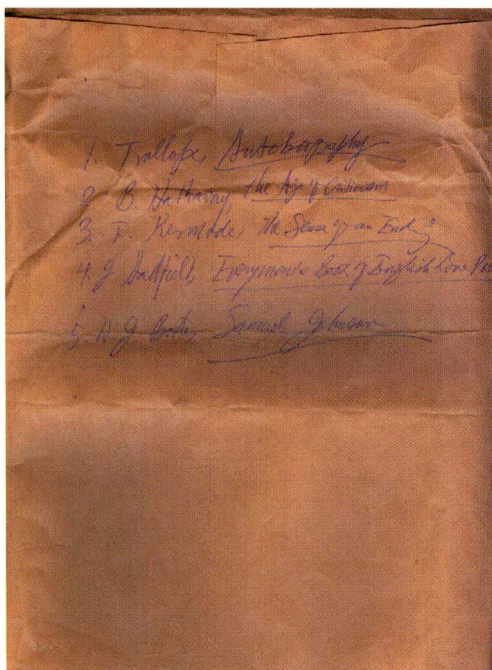 1. Trollope, Autobiography
2 B. Hathaway, the Age of Criticism
3. F. Kermode, the Sense of an Ending
4. J. Hadfield, Everyman's book of English Love Poe
5 W. J. Bate, Samuel Johnson